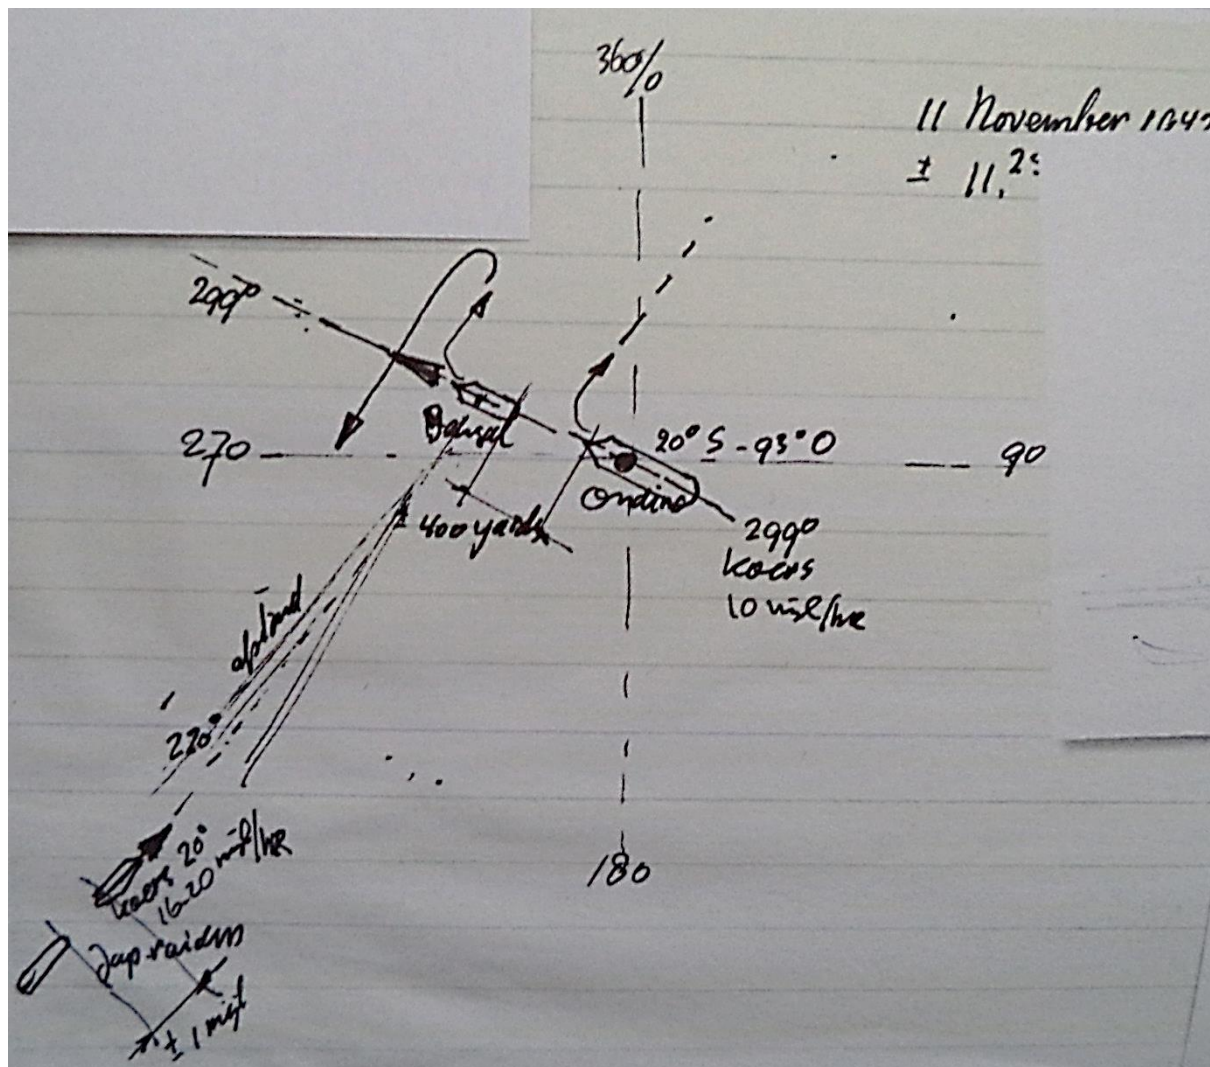 360/0
11 November 1942
± 11.2
299°
Bengal
270
20° S - 93° O
90
Ondina
400 yards
299°
koers
10 mijl/hr
afstand
220°
180
koers 20°
16-20 mijl/hr
Jap-raiders
± 1 mijl